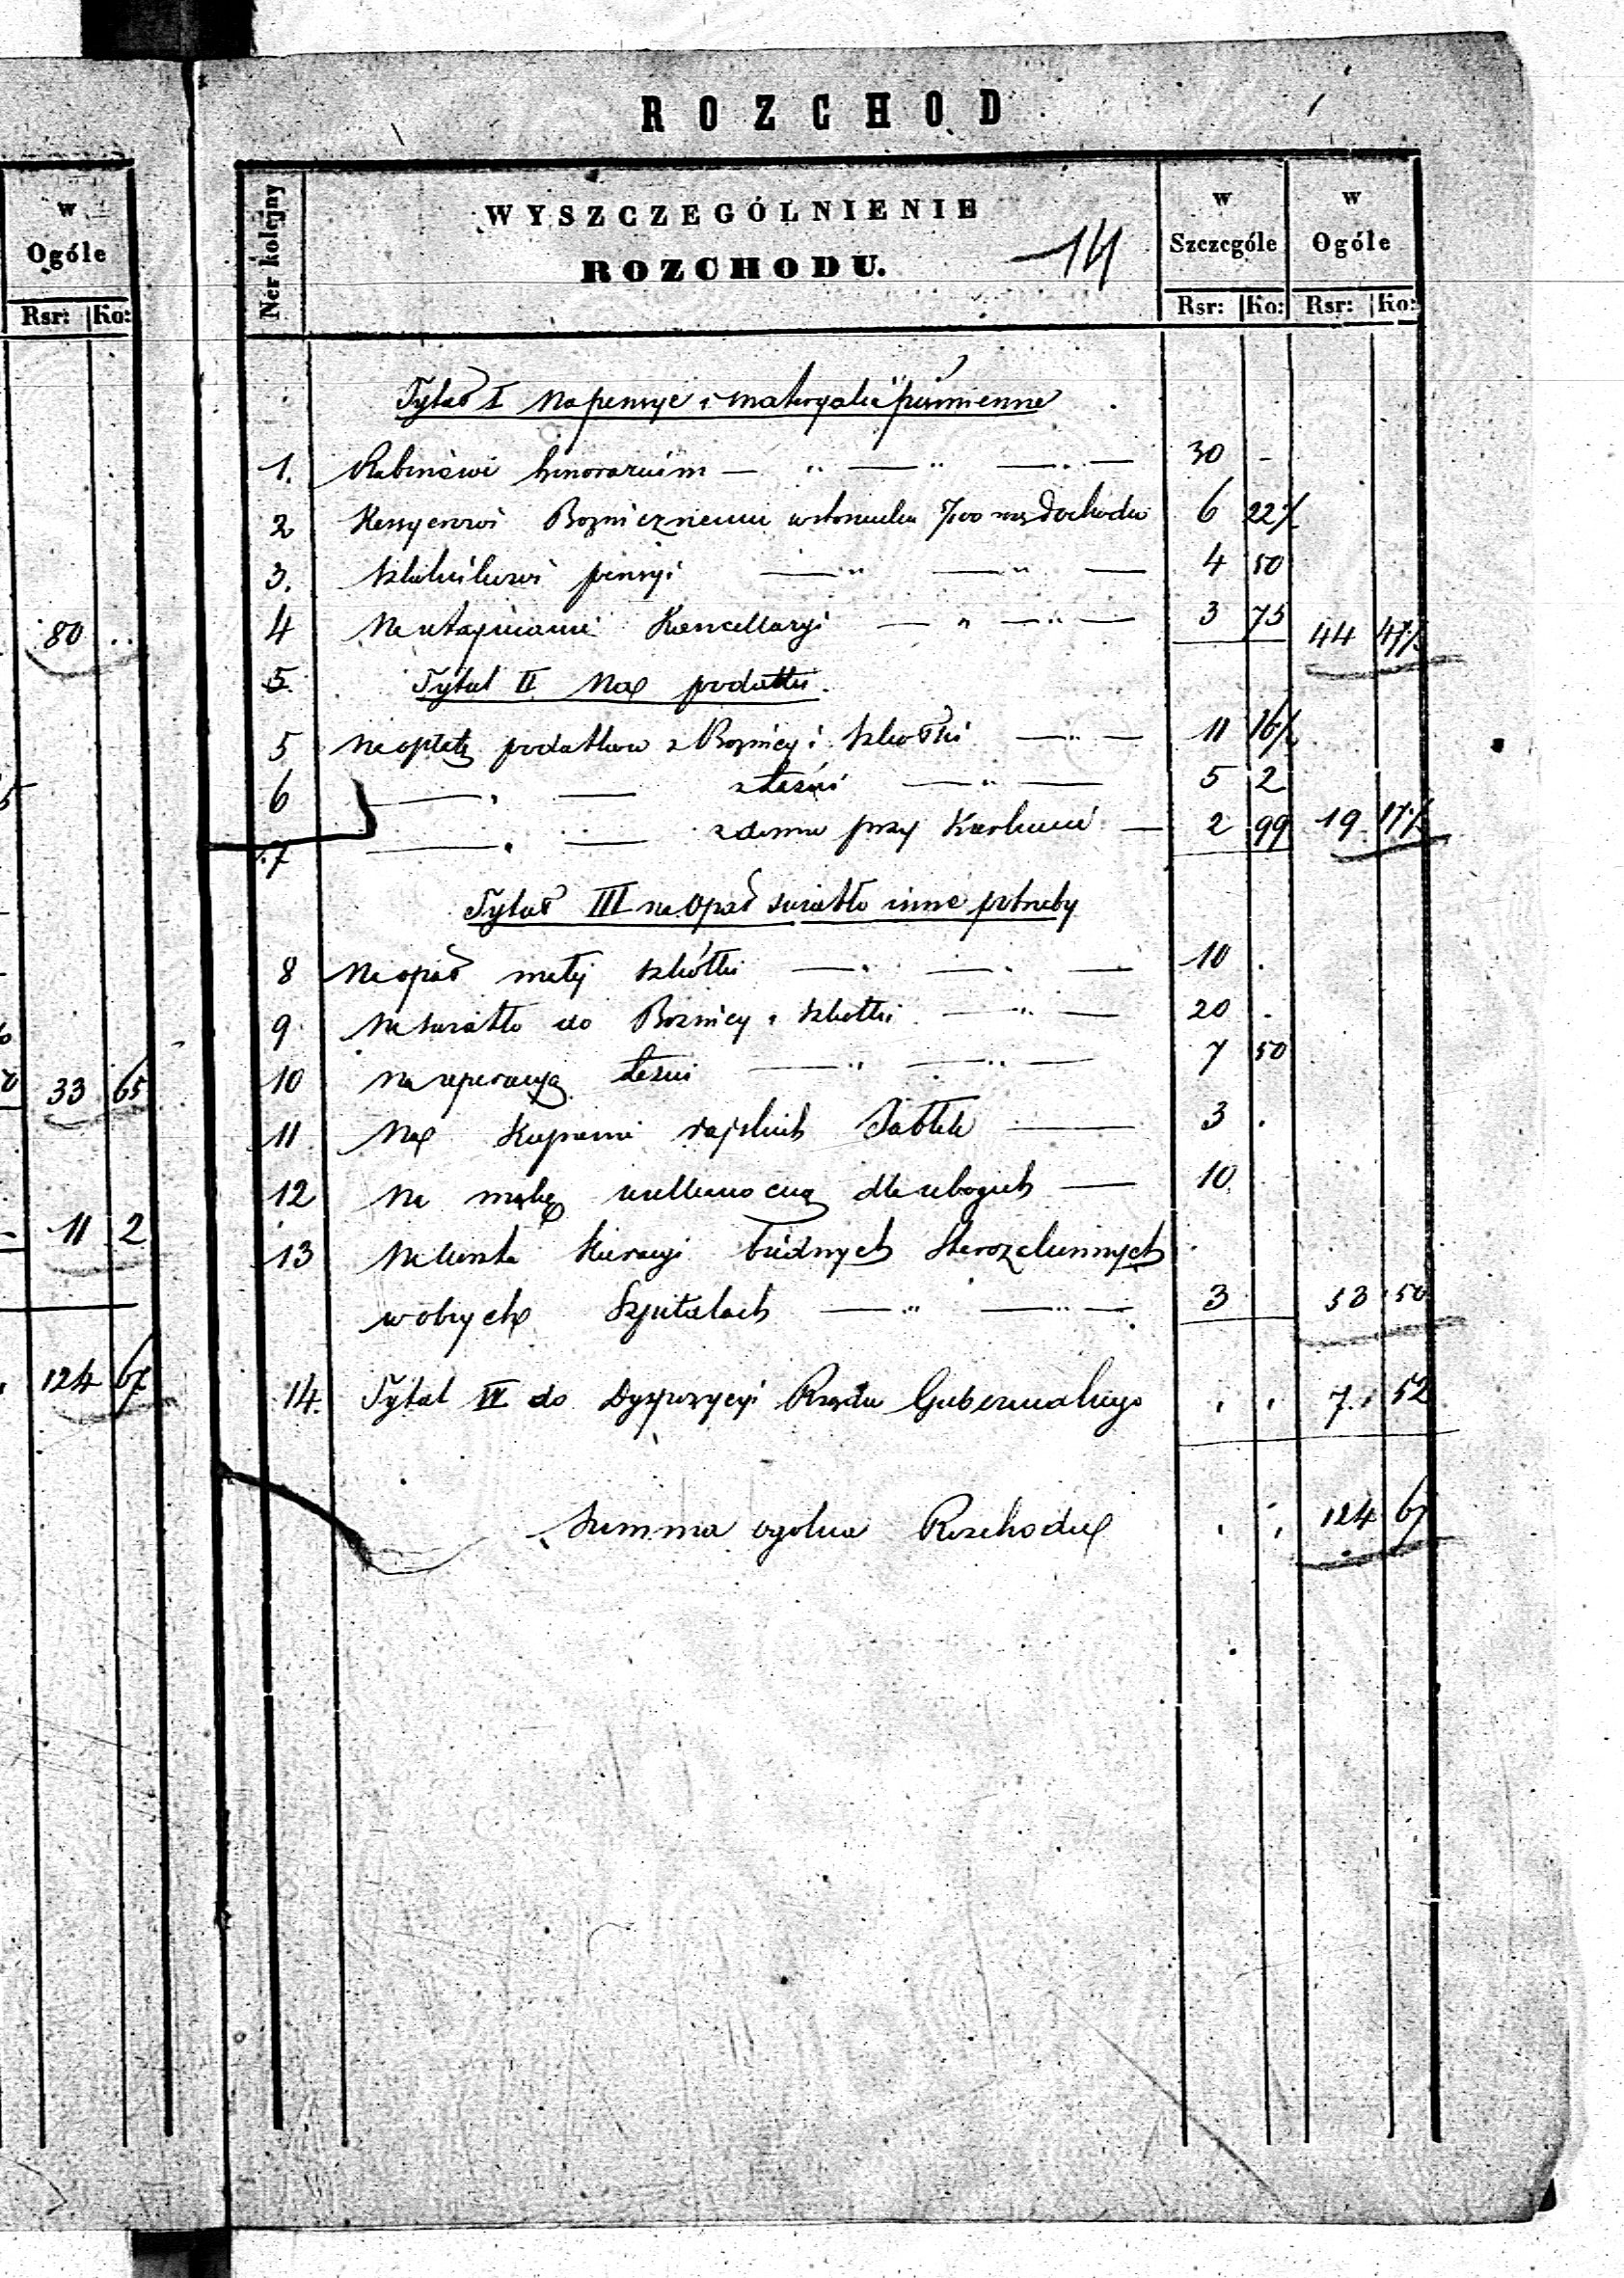 w
Ogóle
Rsr: Ko:
80 ..
33 65
11 2
124 67
ROZCHOD
Ner kolejny
WYSZCZEGÓLNIENIE
ROZCHODU.
14
w
Szczególe
w
Ogóle
Rsr: Ko: Rsr: Ko:
Tytuł I Na pensye i materyały piśmienne
1. Rabinowi honorarium — " — " — " — 30 -
2 Kassyerowi Boznicznemu w stosunku 5/100 Dochodu 6 22½
3. Szkolnikowi pensyi — " — " — 4 50
4 Na utrzymanie Kancellaryi — " — " — 3 75 44 47½
5. Tytuł II Na podatki.
5 Na opłatę podatków z Boznicy i Szkołki — " — 11 16½
6 — " — z łaźni — " — 5 2
7 — " — z domu przy Kierkucie — 2 99 19 17½
Tytuł III na Opał światło inne potrzeby
8 Na opał małej szkółki — " — " — 10 .
9 Na światło do Boznicy i Szkołki — " — 20 .
10 Na reperacyą łaźni — " — " — 7 50
11 Na Kupienie rajskich Jabłek — 3 .
12 Na mąkę wielkanocną dla ubogich — 10.
13 Na koszta Kuracyi biednych Starozakonnych
w obcych Szpitalach — " — " — 3 53 50
14. Tytuł IV do Dyspozycyi Rządu Gubernialnego . . 7. 52
Summa ogolna Rozchodu . . 124 67